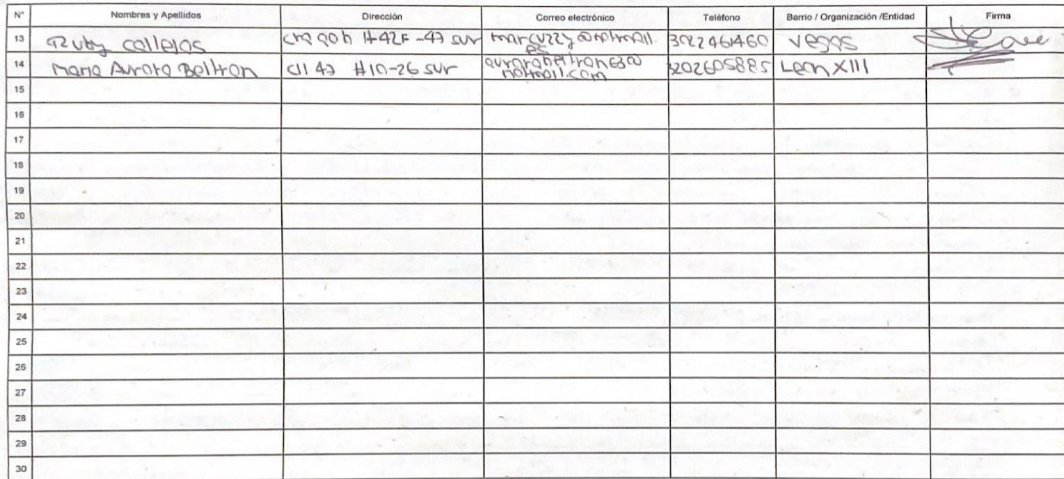 N° Nombres y Apellidos Dirección Correo electrónico Teléfono Barrio / Organización /Entidad Firma
13 Ruby callejas cra 90h #42F-47 sur marcuzzy@hotmail.es 3022461460 vegas
14 Maria Aurora Beltran cll 47 #10-26 sur aurorabeltran63@hotmail.com 3202605885 Leon XIII
15
16
17
18
19
20
21
22
23
24
25
26
27
28
29
30